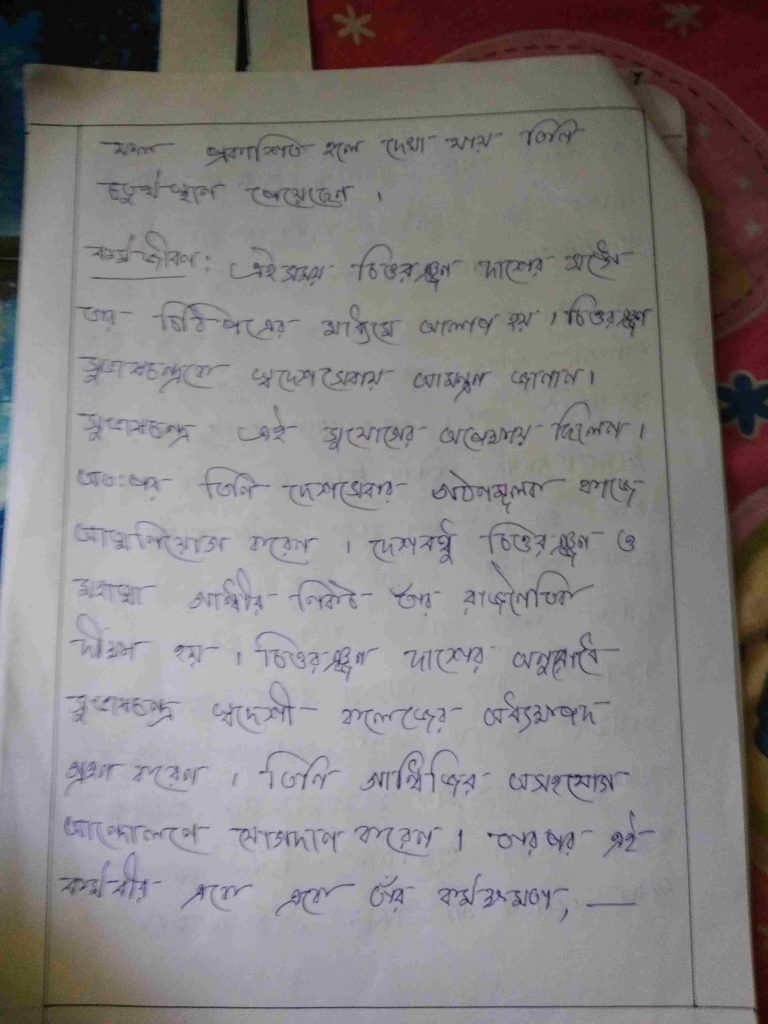 ফল প্রকাশিত হলে দেখা যায় তিনি
চতুর্থ স্থান পেয়েছেন ।
কর্ম জীবন : এই সময় চিত্তরঞ্জন দাশের সঙ্গে
তার চিঠি পত্রের মাধ্যমে আলাপ হয় । চিত্তরঞ্জন
সুভাষচন্দ্রকে স্বদেশ সেবায় আমন্ত্রন জানান ।
সুভাষচন্দ্র এই সুযোগের অপেক্ষায় ছিলেন ।
অতঃপর তিনি দেশসেবার গঠনমূলক কাজে
আত্মনিয়োগ করেন । দেশবন্ধু চিত্তরঞ্জন ও
মহাত্মা গান্ধীর নিকট তাঁর রাজনৈতিক
দীক্ষা হয় । চিত্তরঞ্জন দাশের অনুরোধে
সুভাষচন্দ্র স্বদেশী কলেজের অধ্যক্ষপদ
গ্রহন করেন । তিনি গান্ধিজির অসহযোগ
আন্দোলনে যোগদান করেন । তারপর এই
কর্মবীর একে একে তাঁর কর্মক্ষমতা, —